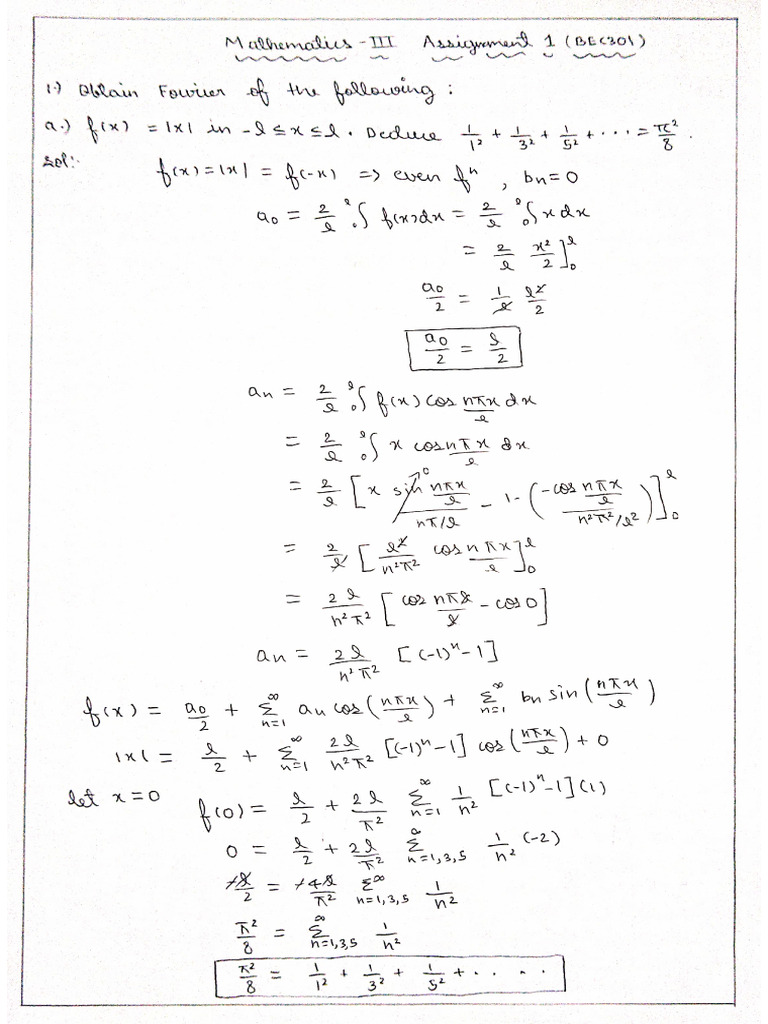 Mathematics - III Assignment 1 (BEC301)
1.) Obtain Fourier of the following :
a.) f(x) = |x| in -l ≤ x ≤ l . Deduce 1/1² + 1/3² + 1/5² + ... = π²/8 .
Sol:-
f(x) = |x| = f(-x) => even fⁿ , bn = 0
a₀ = 2/l ₀∫ˡ f(x)dx = 2/l ₀∫ˡ x dx
= 2/l x²/2 ]₀ˡ
a₀/2 = 1/l l²/2
a₀/2 = l/2
an = 2/l ₀∫ˡ f(x) cos nπx/l dx
= 2/l ₀∫ˡ x cos nπx/l dx
= 2/l [ x sin nπx/l / nπ/l ⁰ - 1· ( -cos nπx/l / n²π²/l² ) ]₀ˡ
= 2/l [ l²/n²π² cos nπx/l ]₀ˡ
= 2l/n²π² [ cos nπl/l - cos 0 ]
an = 2l/n²π² [(-1)ⁿ - 1]
f(x) = a₀/2 + Σ∞n=1 an cos(nπx/l) + Σ∞n=1 bn sin(nπx/l)
|x| = l/2 + Σ∞n=1 2l/n²π² [(-1)ⁿ - 1] cos(nπx/l) + 0
let x = 0 f(0) = l/2 + 2l/π² Σ∞n=1 1/n² [(-1)ⁿ - 1] (1)
0 = l/2 + 2l/π² Σ∞n=1,3,5 1/n² (-2)
-l/2 = -4l/π² Σ∞n=1,3,5 1/n²
π²/8 = Σ∞n=1,3,5 1/n²
π²/8 = 1/1² + 1/3² + 1/5² + . . . . .